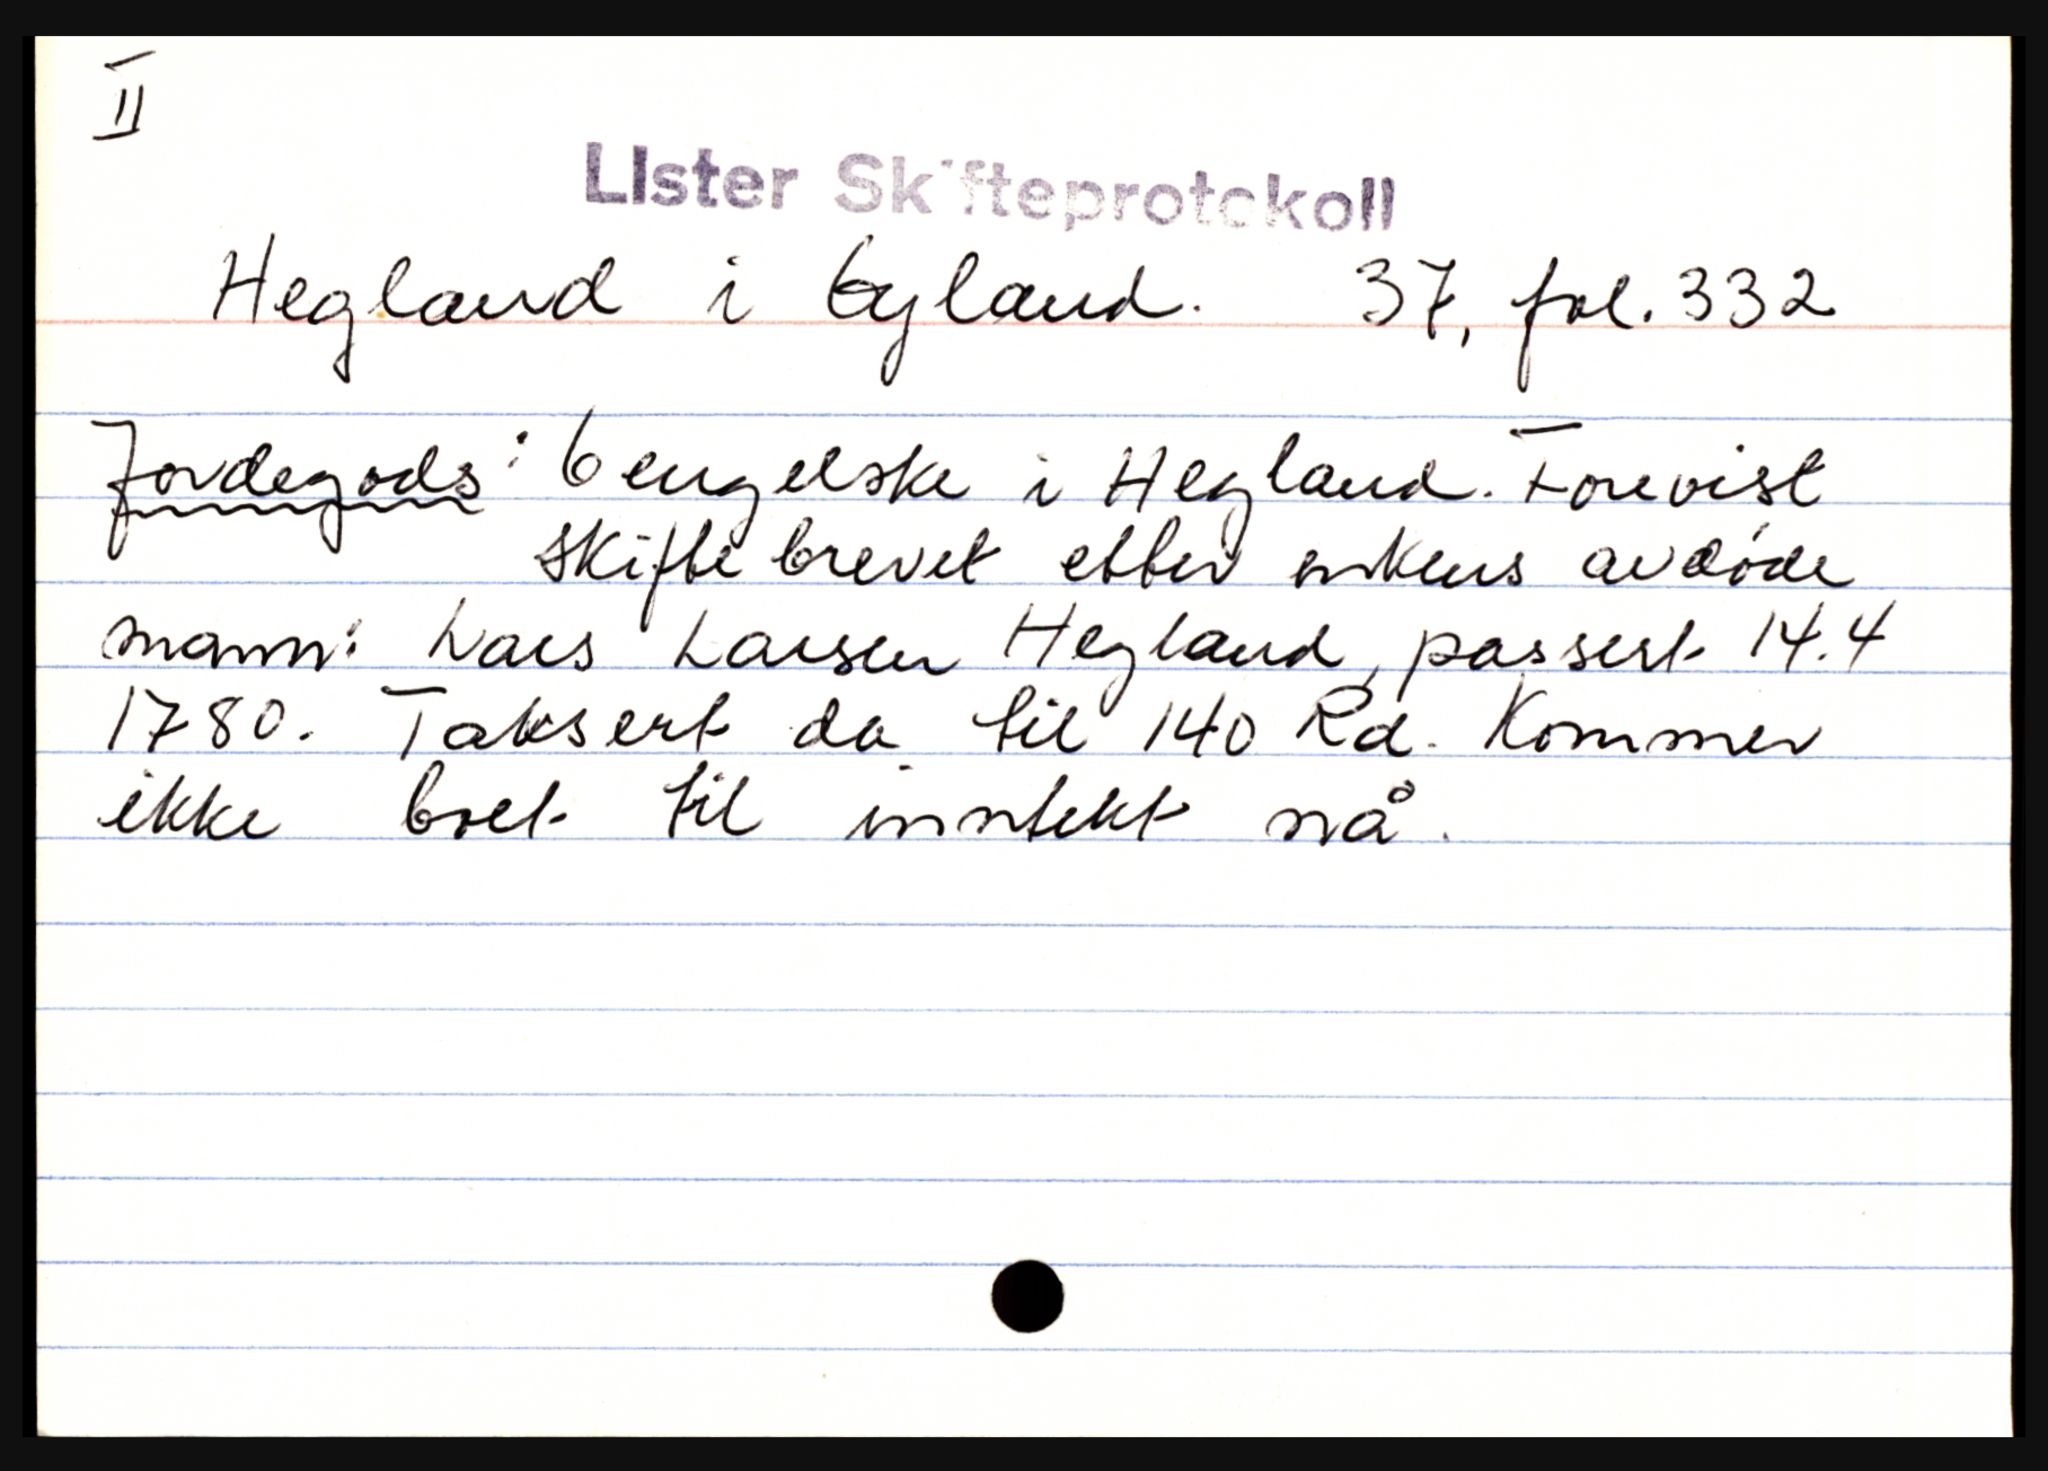 II
LIster Skifteprotokoll
Hegland i Gyland. 37, fol. 332
Jordegods: 6 engelske i Hegland. Forevist
skiftebrevet etter enkens avdøde
mann: Lars Larsen Hegland, passert 14.4
1780. Taksert da til 140 Rd. Kommer
ikke boet til inntekt nå.